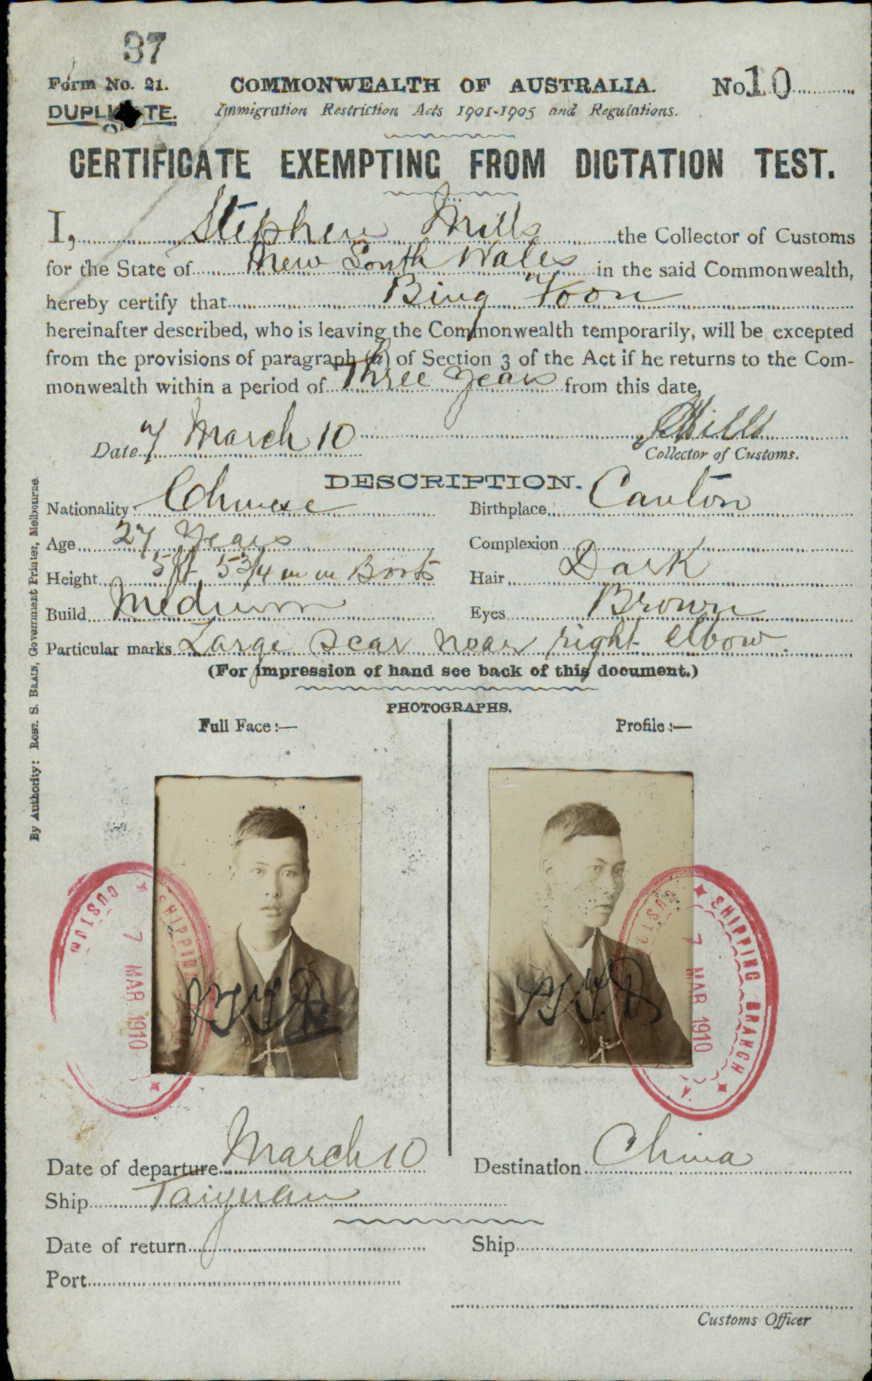 37
Form No. 21. COMMONWEALTH OF AUSTRALIA. No. 10
DUPLICATE. Immigration Restriction Acts 1901-1905 and Regulations.
CERTIFICATE EXEMPTING FROM DICTATION TEST.
I, Stephen Mills the Collector of Customs
for the State of New South Wales in the said Commonwealth,
hereby certify that Bing Yoon
hereinafter described, who is leaving the Commonwealth temporarily, will be excepted
from the provisions of paragraph (a) of Section 3 of the Act if he returns to the Com-
monwealth within a period of Three Years from this date.
Date 7 March 10 SMills
Collector of Customs.
DESCRIPTION.
Nationality Chinese Birthplace Canton
Age 27 Years Complexion
Height 5ft 5 3/4 in in Boots Hair Dark
Build Medium Eyes Brown
Particular marks Large Scar near right elbow.
(For impression of hand see back of this document.)
PHOTOGRAPHS.
Full Face :— Profile :—
CUSTOMS SHIPPING
7 MAR 1910
CUSTO SHIPPING BRANCH
7 MAR 1910
Date of departure March 10 Destination China
Ship Taiyuan
Date of return Ship
Port
Customs Officer
By Authority: ROBT. S. BRAIN, Government Printer, Melbourne.